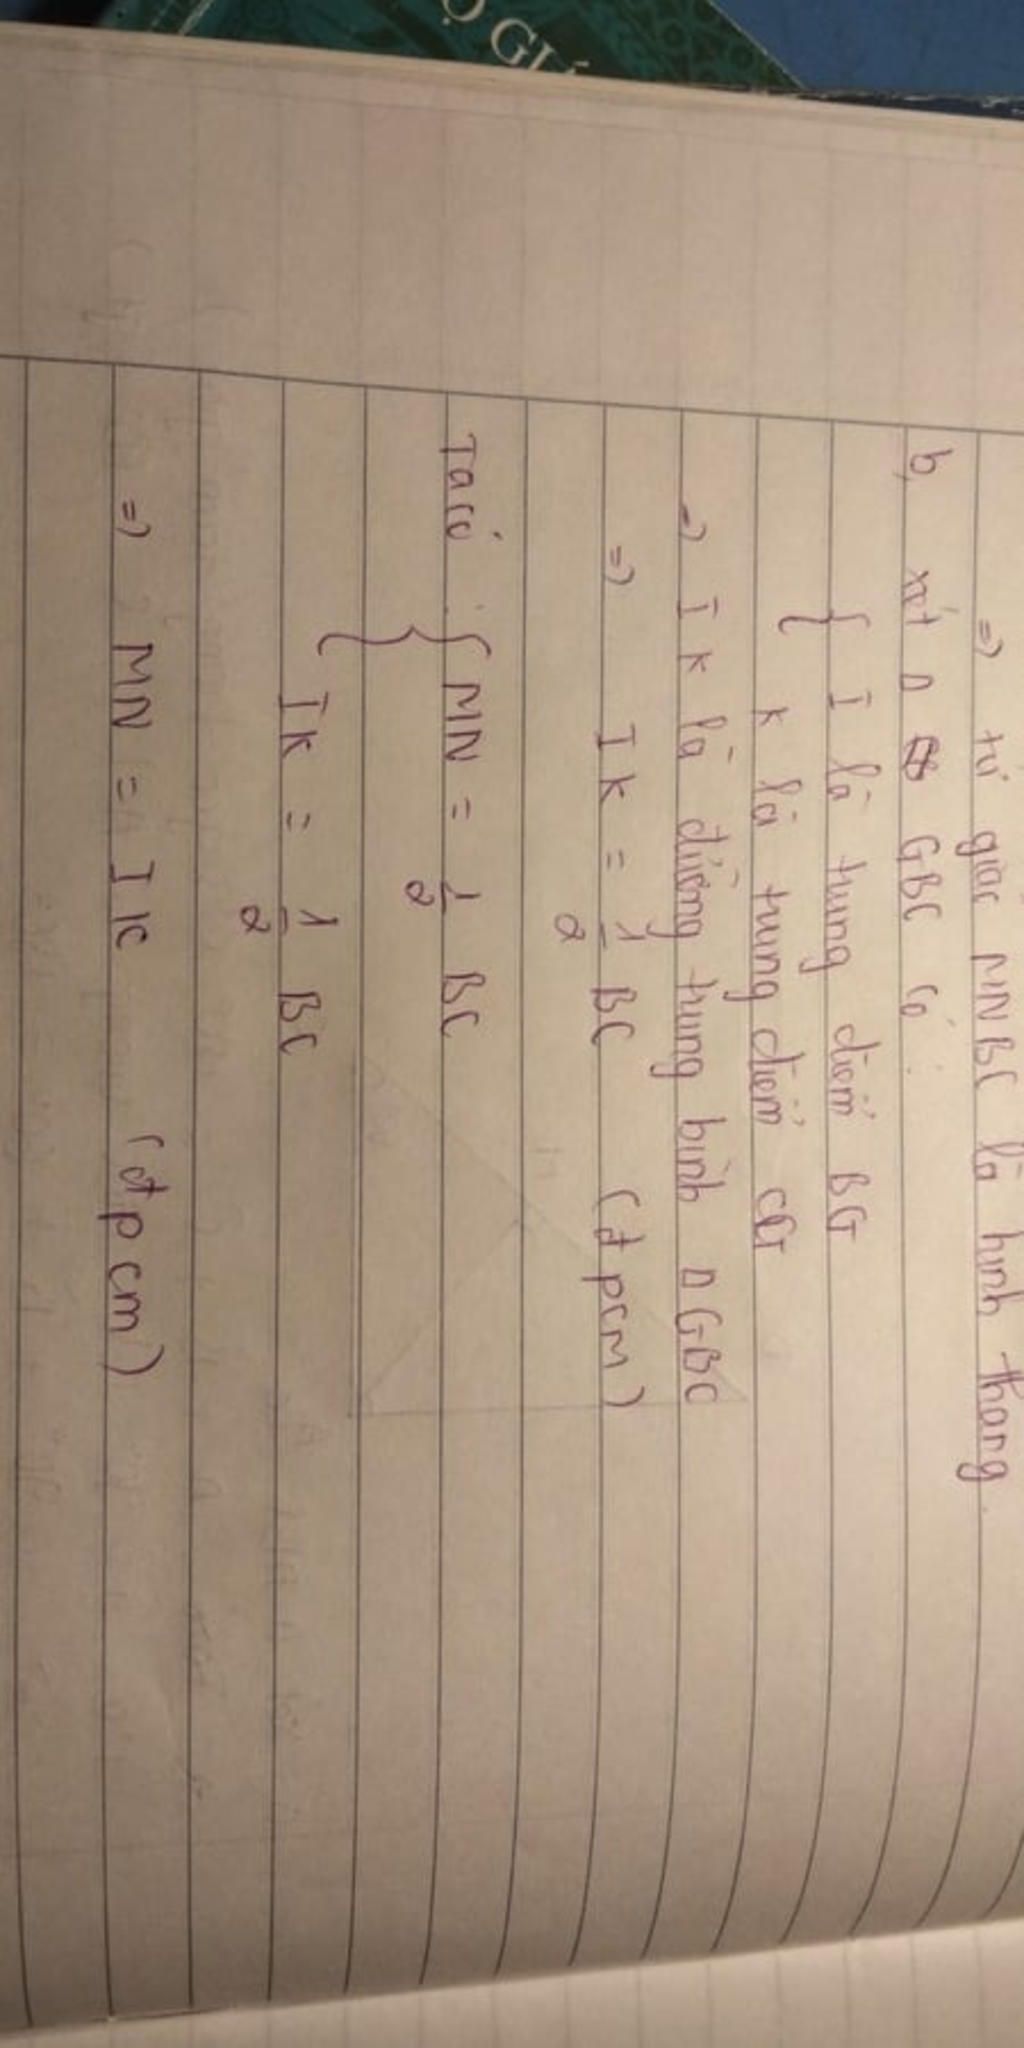 Ọ GIÁ
=> tứ giác MNBC là hình thang.
b, xét Δ GBC có :
{ I là trung điểm BG
K là trung điểm CG
=> IK là đường trung bình Δ GBC
=> IK = 1/2 BC (đpcm)
Ta có : { MN = 1/2 BC
IK = 1/2 BC
=> MN = IK (đpcm)